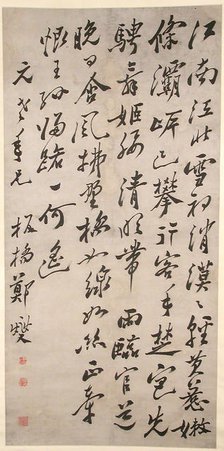 江南江北雪初消漠漠輕黃惹嫩
條灞岸已攀行客手楚宮先
騁舞姬腰清明帶雨臨官道
晚日含風拂野橋如線如絲正牽
恨王孫歸路一何遙
元老年兄 板橋鄭燮